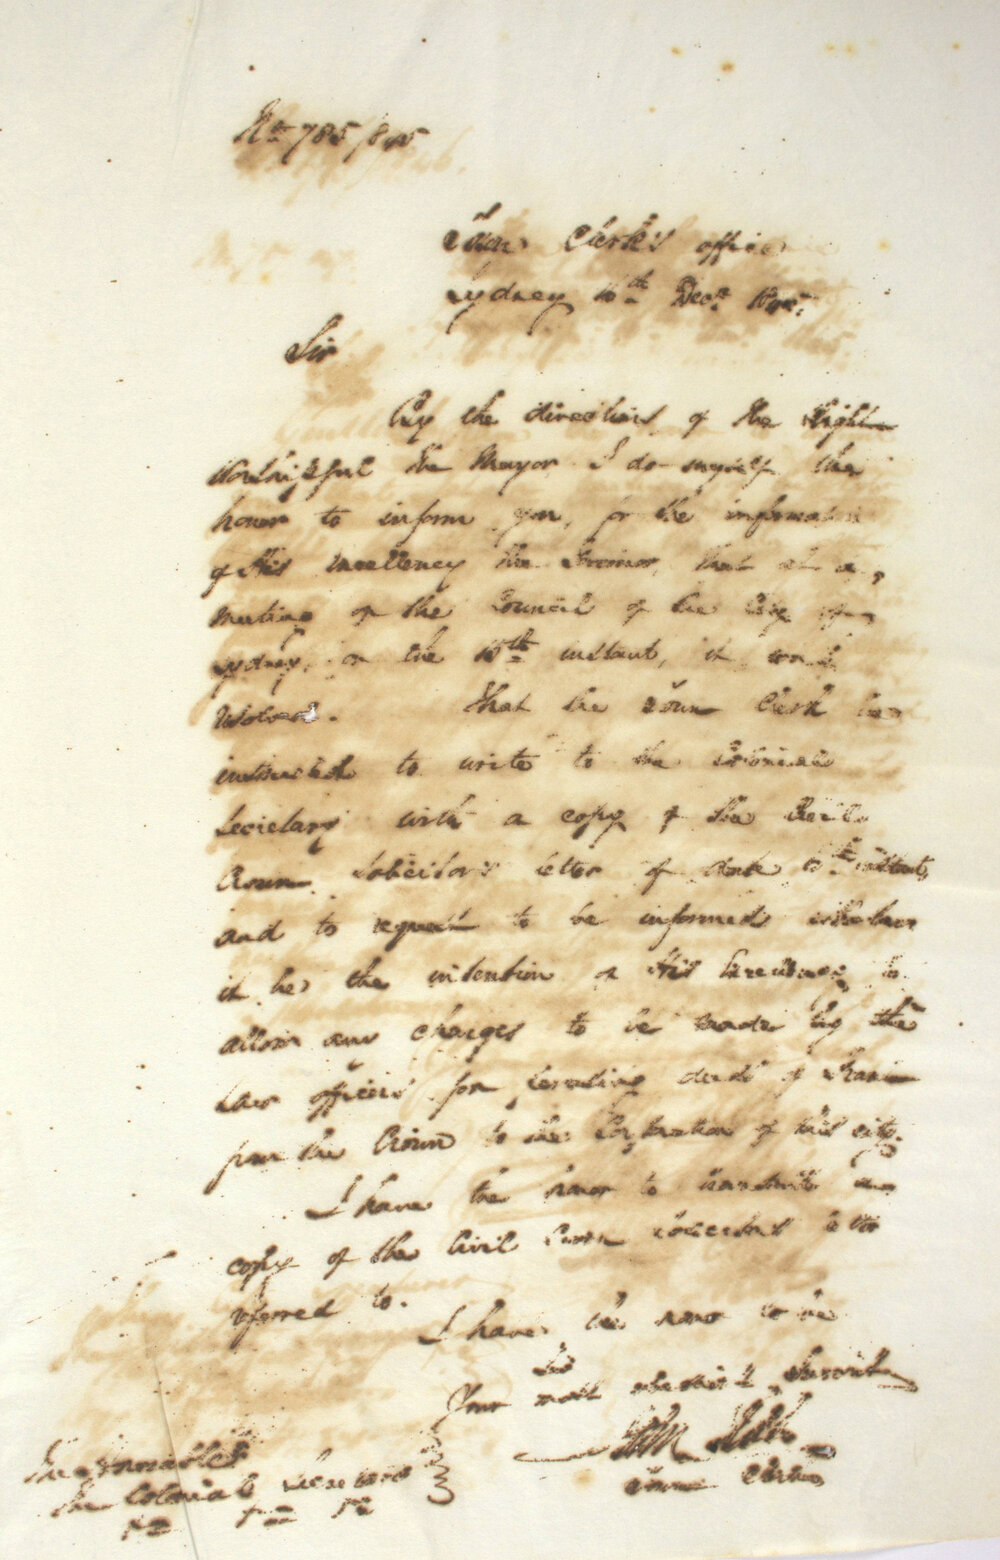 No 785/845
Town Clerk's office
Sydney 16th Decr 1845.
Sir
By the directions of the Right
Worshipful the Mayor I do myself the
honor to inform you, for the information
of His Excellency the Governor, that at a
meeting of the Council of the City of
Sydney, on the 15th instant, it was
resolved. That the Town Clerk be
instructed to write to the Colonial
Secretary with a copy of the Civil
Crown Solicitor's letter of date instant,
and to request to be informed whether
it be the intention of His Excellency to
allow any charges to be made by the
Law officers for deeds of Grant
from the Crown to the Corporation of this city.
I have the honor to transmit a
copy of the Civil Crown Solicitors letter
referred to.
I have the honor to be
Sir
Your most obedient Servant
John
Town Clerk
The Honorable
The Colonial Secretary